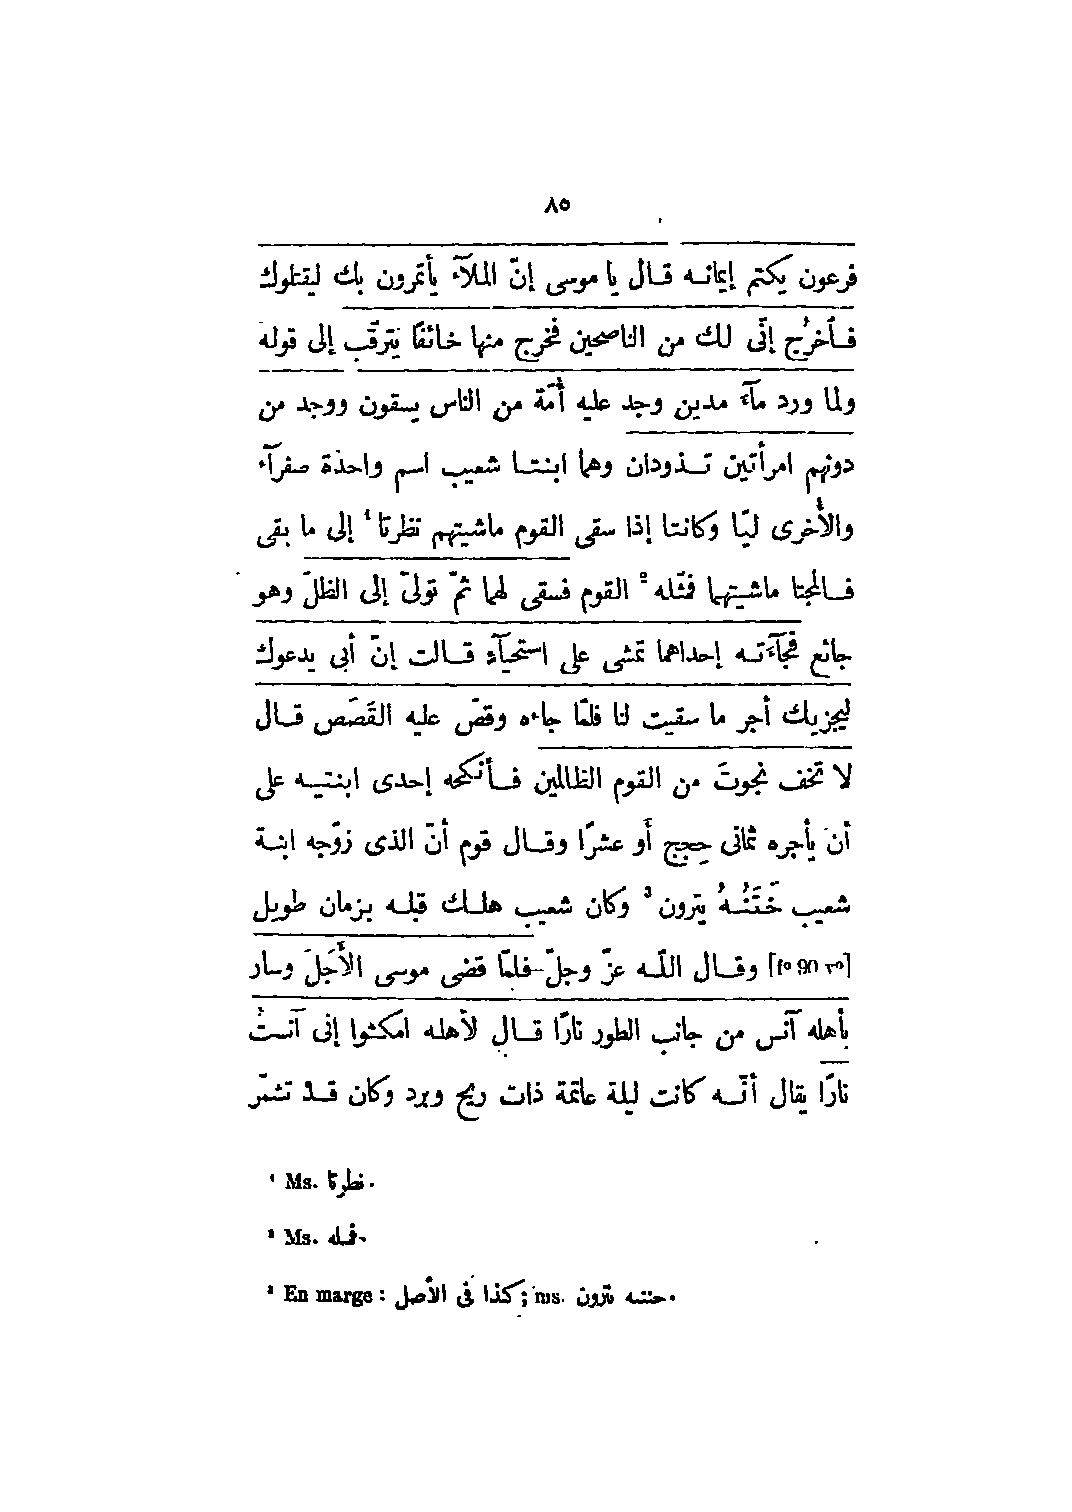 ٨٥
فرعون يكتم إيمانـه قـال يا موسى إنّ الملآء يأتمرون بك ليقتلوك
فـأخرُج إنّى لك من الناصحين فخرج منها خائفًا يترقّب إلى قوله
ولما ورد مآء مدين وجد عليه أمّة من الناس يسقون ووجد من
دونهم امرأتين تـذودان وهما ابنتـا شعيب اسم واحدة صفرآء
والأخرى ليّا وكانتا إذا سقى القوم ماشيتهم نظرتا ¹ إلى ما بقى
ماشيتهما ² القوم فسقى لهما ثمّ تولّى إلى الظلّ وهو
جائع فجآءتـه إحداهما تمشى على استحيآء قـالت إنّ أبى يدعوك
ليجزيك أجر ما سقيت لنا فلمّا جاءه وقصّ عليه القَصَص قـال
لا تخف نجوتَ من القوم الظالمين فـأنكحه إحدى ابنتـيـه على
أن يأجره ثمانى حِجج أو عشرًا وقـال قوم أنّ الذى زوّجه ابنـة
شعيب خَتَنُـهُ يترون ³ وكان شعيب هلـك قبلـه بزمان طويـل
[fº 90 rº] وقـال اللّـه عزّ وجلّ فلمّا قضى موسى الأَجَلَ وسار
بأهله آنس من جانب الطور نارًا قـال لأهلـه امكثوا إنى آنستُ
نارًا يقال أنّـه كانت ليلة عاتمة ذات ريح وبرد وكان قـد تشمّر
¹ Ms. نطرتا.
² Ms. .
³ En marge : كذا فى الأصل; ms. حتنه يترون.